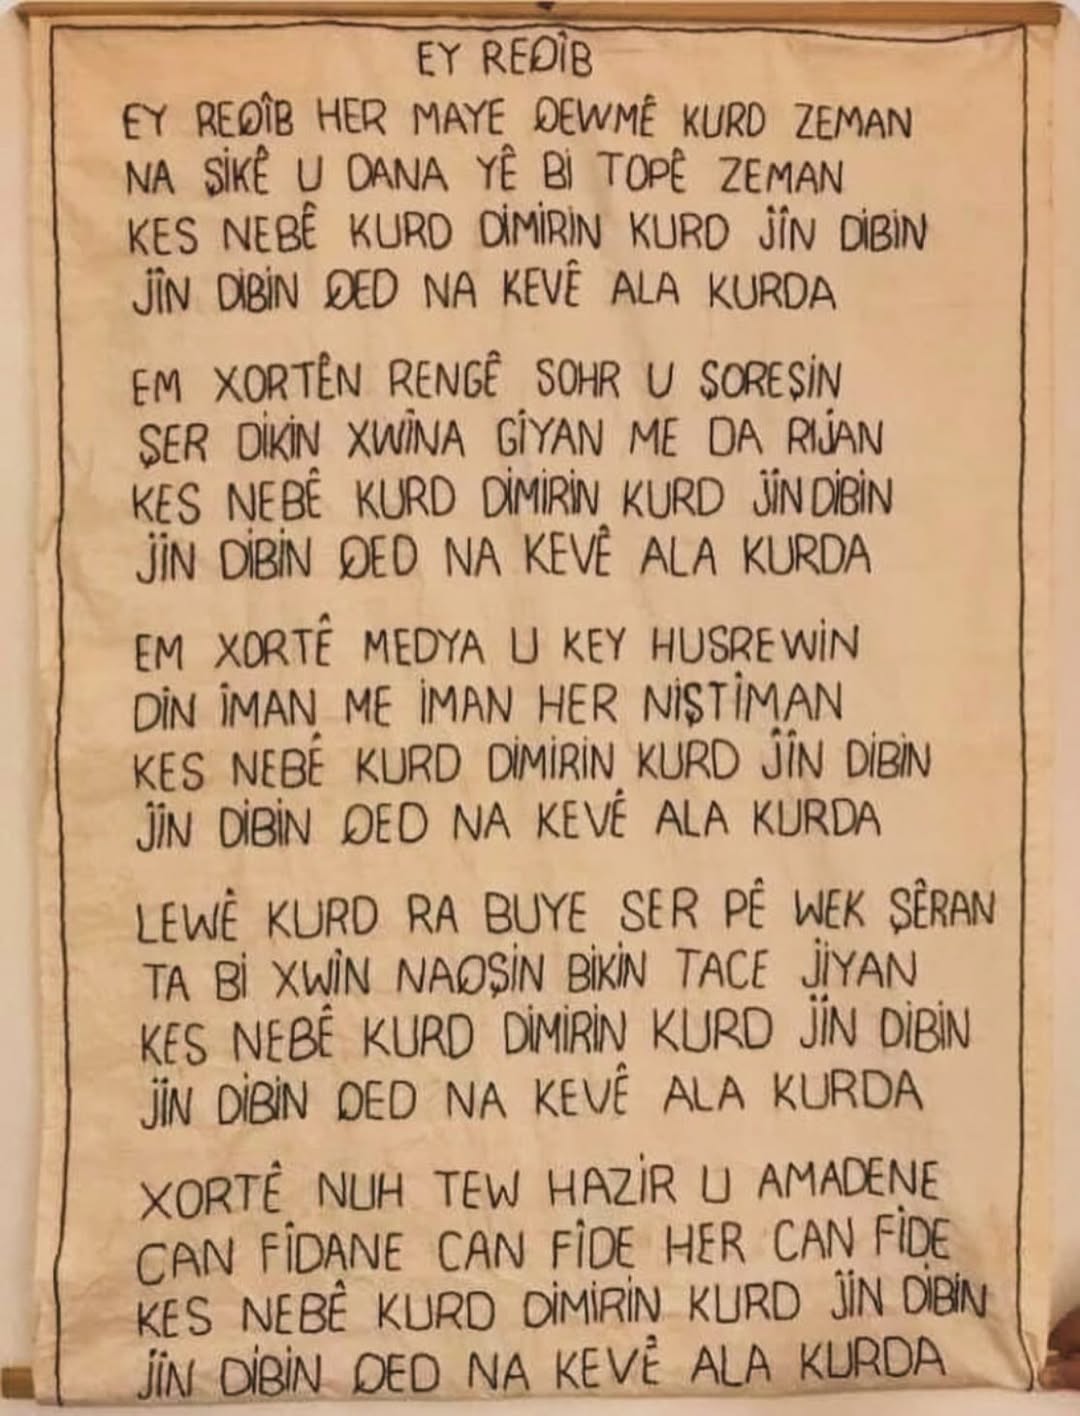 EY REQÎB
EY REQÎB HER MAYE QEWMÊ KURD ZEMAN
NA ŞİKÊ U DANA YÊ Bİ TOPÊ ZEMAN
KES NEBÊ KURD DİMİRİN KURD JÎN DİBİN
JÎN DİBİN QED NA KEVÊ ALA KURDA
EM XORTÊN RENGÊ SOHR U ŞOREŞİN
ŞER DİKİN XWÎNA GÎYAN ME DA RIJAN
KES NEBÊ KURD DİMİRİN KURD JÎN DİBİN
JÎN DİBİN QED NA KEVÊ ALA KURDA
EM XORTÊ MEDYA U KEY HUSREWİN
DİN ÎMAN ME İMAN HER NİŞTÎMAN
KES NEBÊ KURD DİMİRİN KURD JÎN DİBİN
JÎN DİBİN QED NA KEVÊ ALA KURDA
LEWÊ KURD RA BUYE SER PÊ WEK ŞÊRAN
TA Bİ XWÎN NAQŞİN BİKİN TACE JİYAN
KES NEBÊ KURD DİMİRİN KURD JÎN DİBİN
JÎN DİBİN QED NA KEVÊ ALA KURDA
XORTÊ NUH TEW HAZİR U AMADENE
CAN FÎDANE CAN FÎDE HER CAN FÎDE
KES NEBÊ KURD DİMİRİN KURD JÎN DİBİN
JÎN DİBİN QED NA KEVÊ ALA KURDA